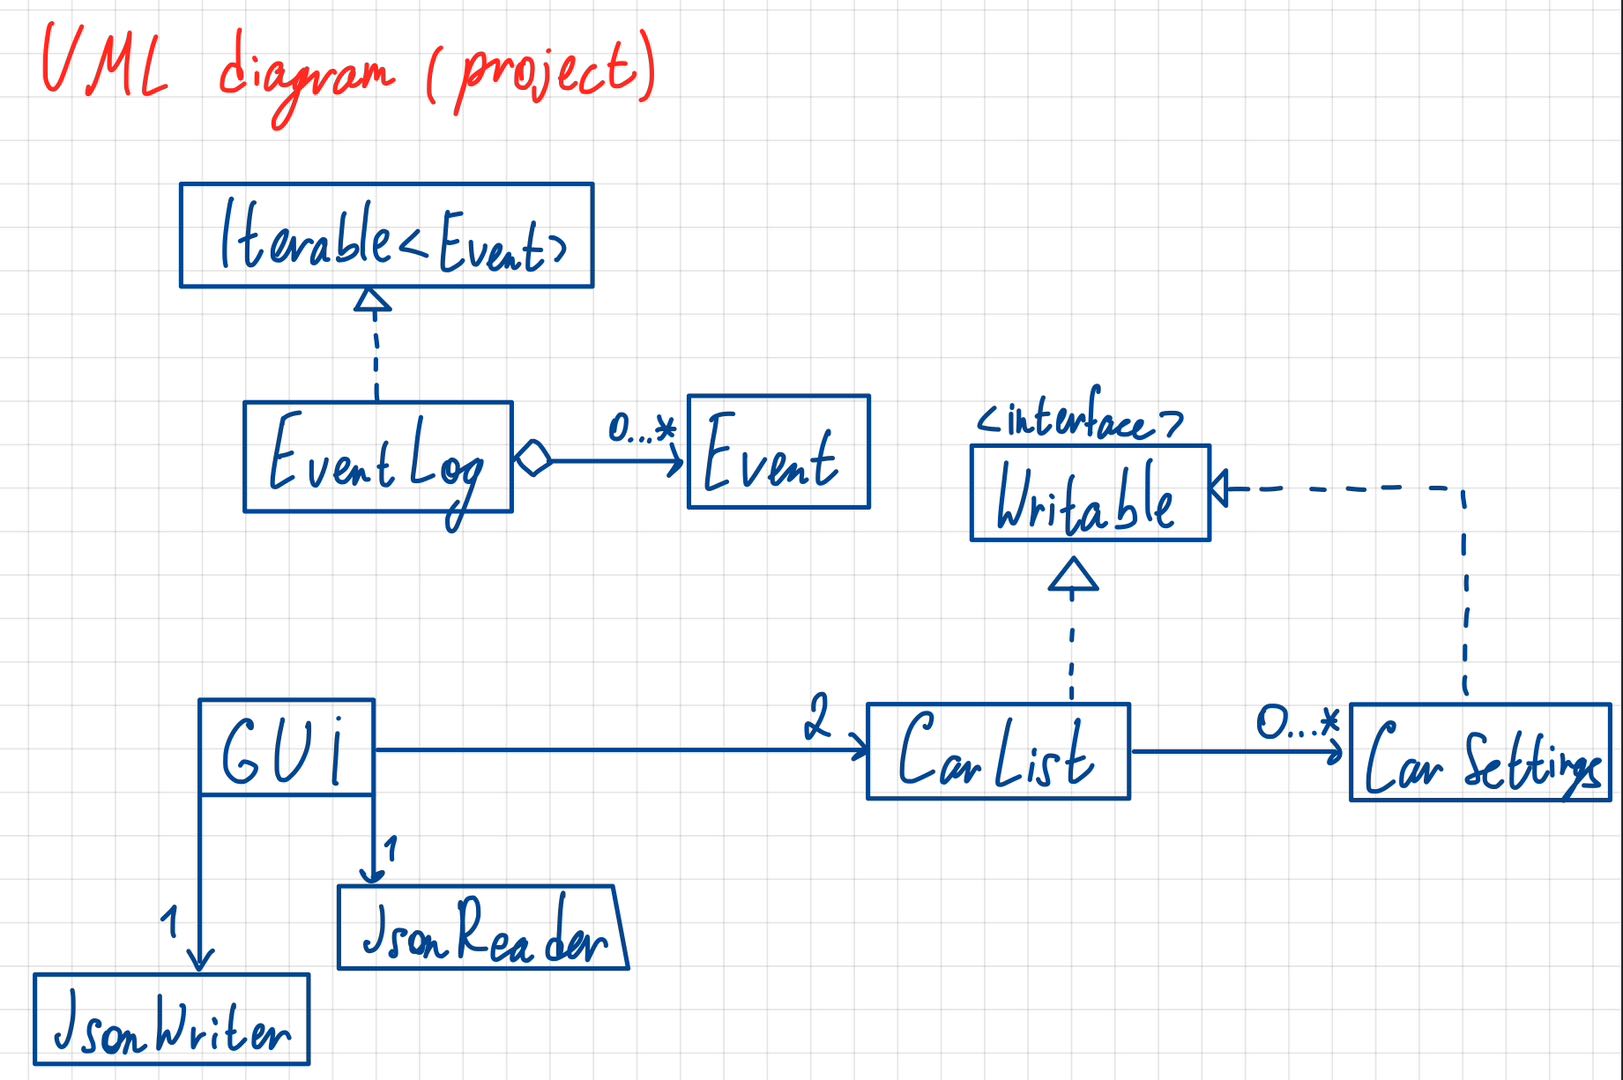 UML diagram (project)
Iterable<Event>
EventLog
0...*
Event
<interface>
Writable
GUi
2
CarList
0...*
Car Settings
1
JsonReader
1
JsonWriter